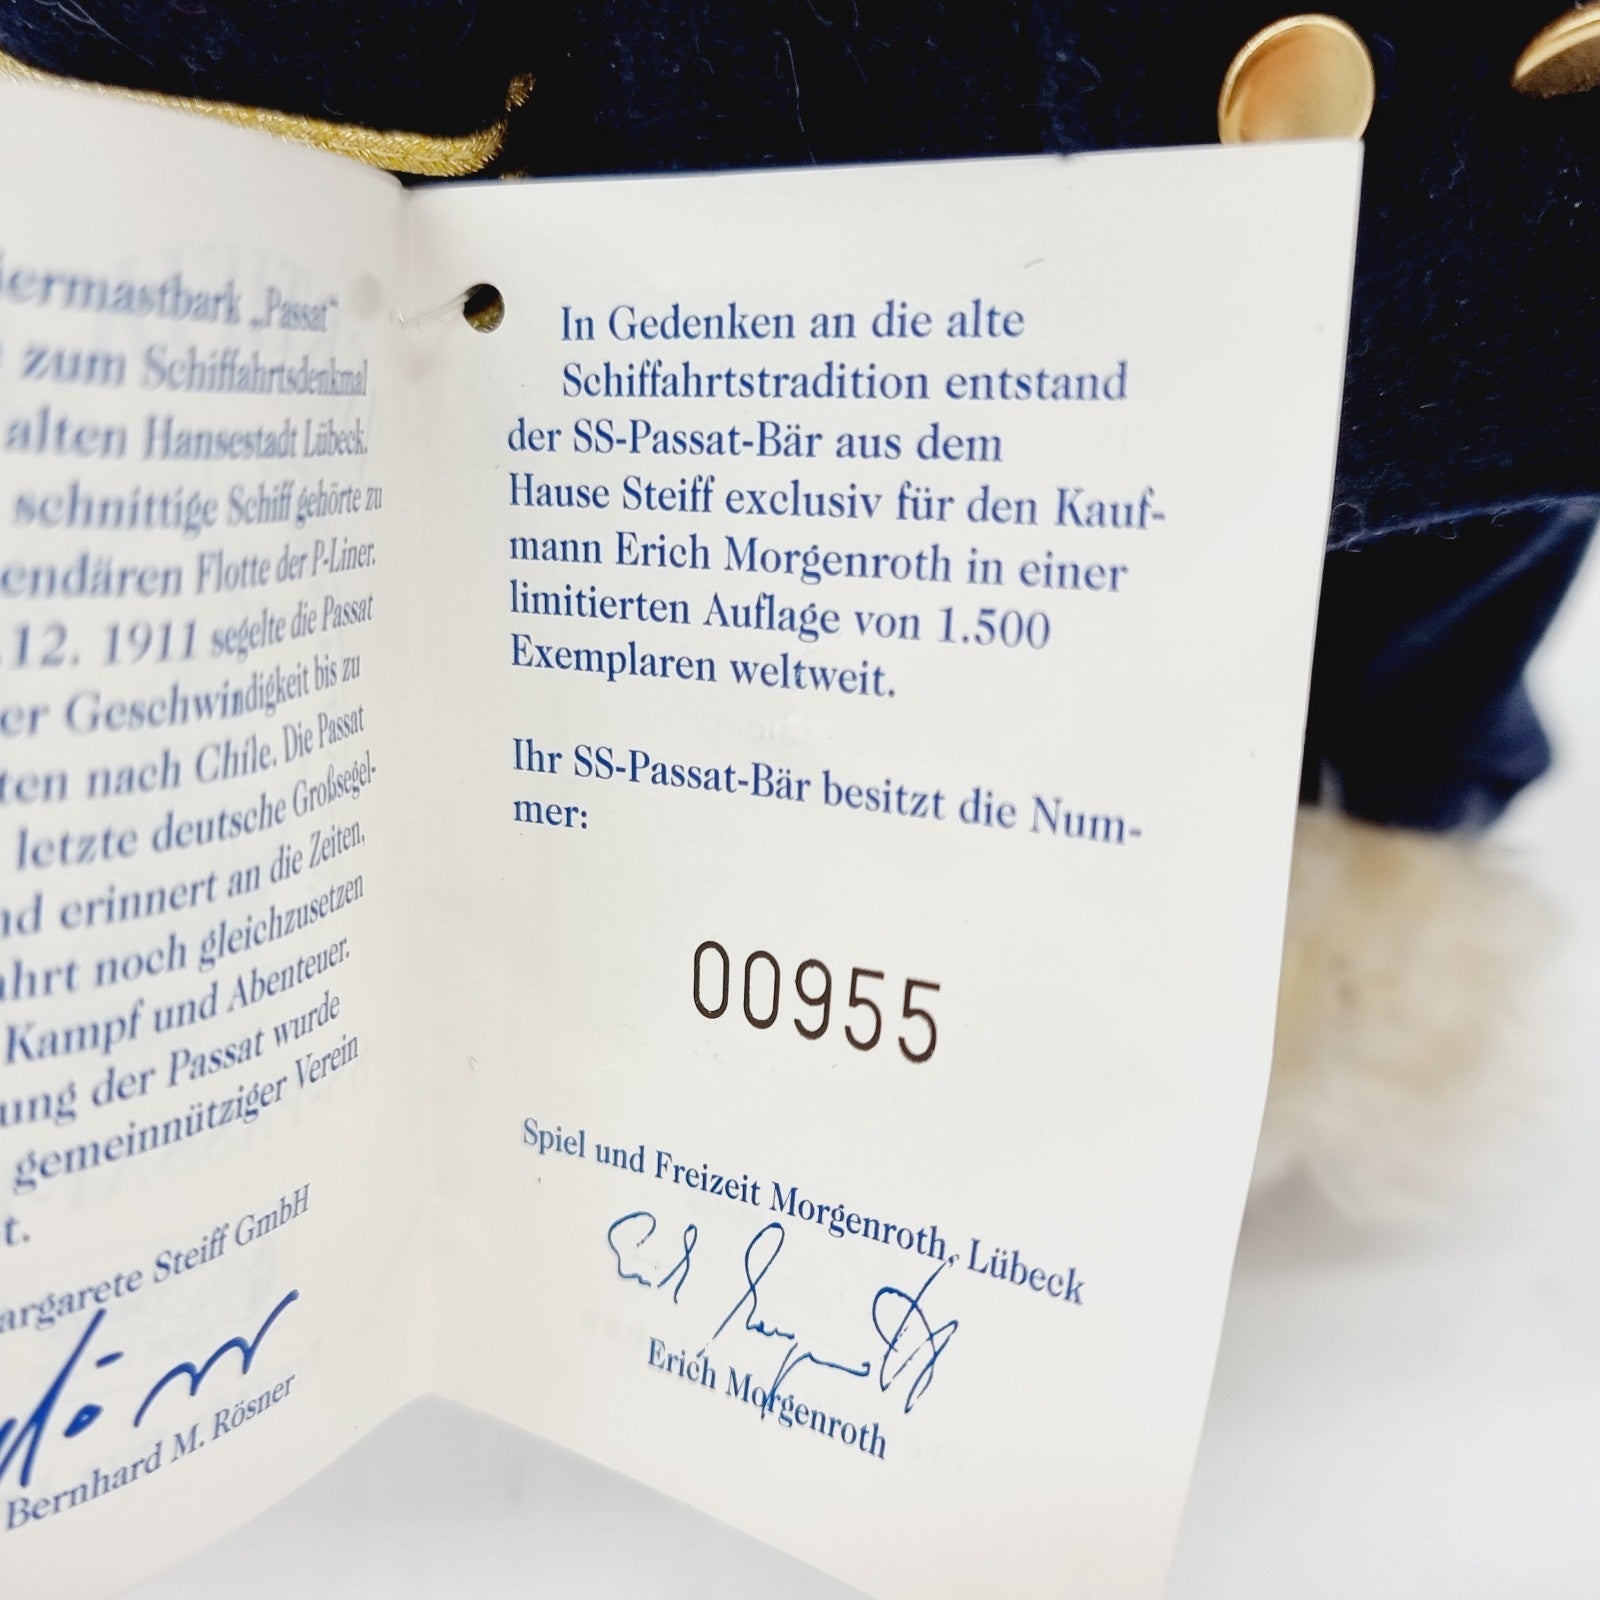 "Passat"
zum Schiffahrtsdenkmal
alten Hansestadt Lübeck.
schnittige Schiff gehörte zu
Flotte der P-Liner.
12. 1911 segelte die Passat
Geschwindigkeit bis zu
nach Chile. Die Passat
letzte deutsche Großsegel-
erinnert an die Zeiten,
noch gleichzusetzen
Kampf und Abenteuer.
der Passat wurde
gemeinnütziger Verein
Steiff GmbH
Bernhard M. Rösner
In Gedenken an die alte
Schiffahrtstradition entstand
der SS-Passat-Bär aus dem
Hause Steiff exclusiv für den Kauf-
mann Erich Morgenroth in einer
limitierten Auflage von 1.500
Exemplaren weltweit.
Ihr SS-Passat-Bär besitzt die Num-
mer:
00955
Spiel und Freizeit Morgenroth, Lübeck
Erich Morgenroth
Erich Morgenroth